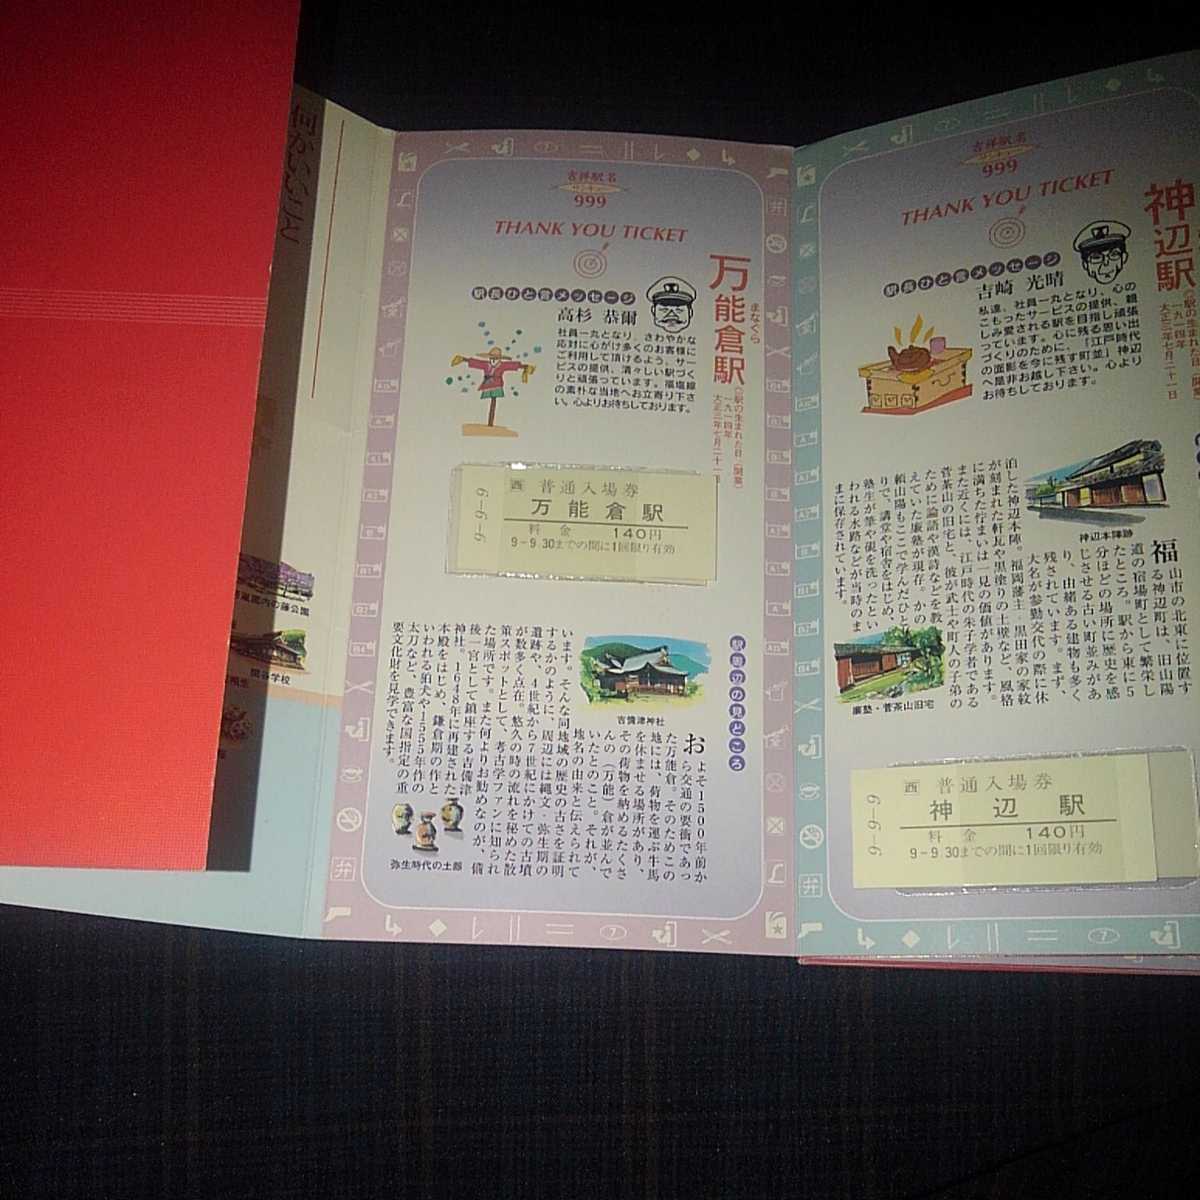 何かいいこと
嵐園内の藤公園
閑谷学校
吉祥駅名
サンキュー
999
THANK YOU TICKET
万能倉駅
まなぐら
(駅の生まれた日/開業)
一九一四年
大正三年七月二十一日
駅長ひと言メッセージ
高杉 恭爾
社員一丸となり、さわやかな
応対に心がけ多くのお客様に
ご利用して頂けるよう、サー
ビスの提供、清々しい駅づく
りと頑張っています。福塩線
の素朴な当地へお立寄り下さ
い。心よりお待ちしております。
西 普通入場券
万能倉駅
料金 140円
9-9.30までの間に1回限り有効
9-9-9
駅周辺の見どころ
吉備津神社
およそ1500年前か
ら交通の要衝であっ
た万能倉。そのためこの
地には、荷物を運ぶ牛馬
を休ませる場所があり、
その荷物を納めるたくさ
んの(万能)倉が並んで
いたとのこと。それが、
地名の由来と伝えられて
います。そんな同地域の歴史の古さを証明
するかのように、周辺には縄文・弥生期の
遺跡や、4世紀から7世紀にかけての古墳
が数多く点在。悠久の時の流れを秘めた散
策スポットとして、考古学ファンに知られ
た場所です。また何よりお勧めなのが、備
後一宮として鎮座する吉備津
神社。1648年に再建された
本殿をはじめ、鎌倉期の作と
いわれる狛犬や1555年作の
太刀など、豊富な国指定の重
要文化財を見学できます。
弥生時代の土器
吉祥駅名
サンキュー
999
THANK YOU TICKET
神辺駅
一九一四年
大正三年七月二十一日
駅長ひと言メッセージ
吉崎 光晴
私達、社員一丸となり、心の
こもったサービスの提供、親
しみ愛される駅を目指し頑張
っています。心に残る思い出
づくりのために、「江戸時代
の面影を今に残す町並」神辺
へ是非お越し下さい。心より
お待ちしております。
神辺本陣跡
福山市の北東に位置す
る神辺町は、旧山陽
道の宿場町として繁栄し
たところ。駅から東に5
分ほどの場所に歴史を感
じさせる古い町並みがあ
り、由緒ある建物も多く
残されています。まず、
大名が参勤交代の際に休
泊した神辺本陣。福岡藩主・黒田家の家紋
が刻まれた軒瓦や黒塗りの土壁など、風格
に満ちた佇まいは一見の価値があります。
また近くには、江戸時代の朱子学者である
菅茶山の旧宅と、彼が武士や町人の子弟の
ために論語や漢詩などを教
えていた廉塾が現存。かの
頼山陽もここで学んだひと
りで、講堂や宿舎をはじめ、
塾生が筆や硯を洗ったとい
われる水路などが当時のま
まに保存されています。
廉塾・菅茶山旧宅
西 普通入場券
神辺駅
料金 140円
9-9.30までの間に1回限り有効
9-9-9